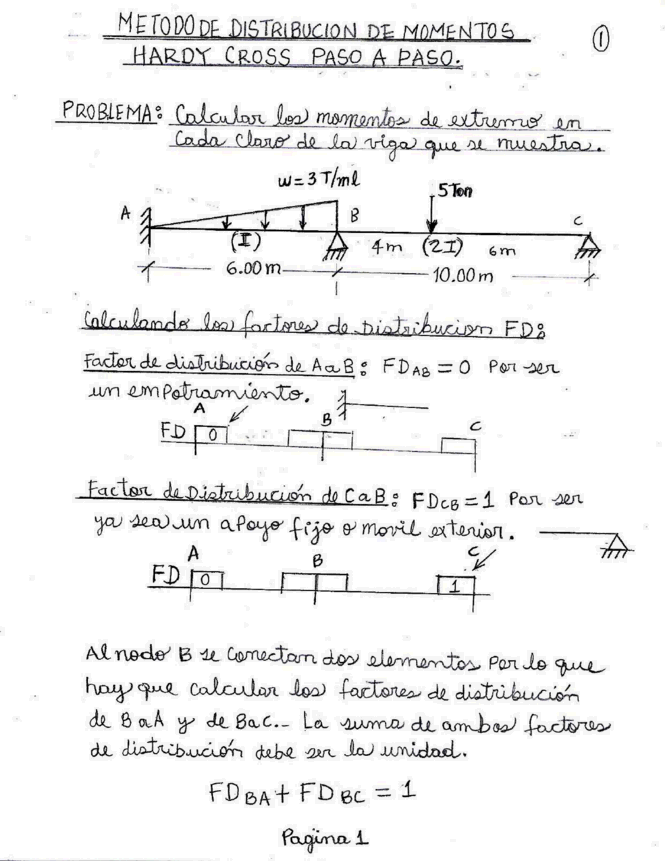 METODO DE DISTRIBUCION DE MOMENTOS
1
HARDY CROSS PASO A PASO.
PROBLEMA: Calcular los momentos de extremo en
cada claro de la viga que se muestra.
w=3 T/ml
5 Ton
A
B
C
(I)
4m (2I) 6m
6.00m
10.00m
Calculando los factores de Distribucion FD:
Factor de distribución de A a B: FDAB = 0 Por ser
un empotramiento.
A
B
C
FD 0
Factor de Distribución de C a B: FDCB = 1 Por ser
ya sea un apoyo fijo o movil exterior.
A
B
C
FD 0 1
Al nodo B se conectan dos elementos por lo que
hay que calcular los factores de distribución
de B a A y de B a C.- La suma de ambos factores
de distribución debe ser la unidad.
FDBA + FDBC = 1
Pagina 1